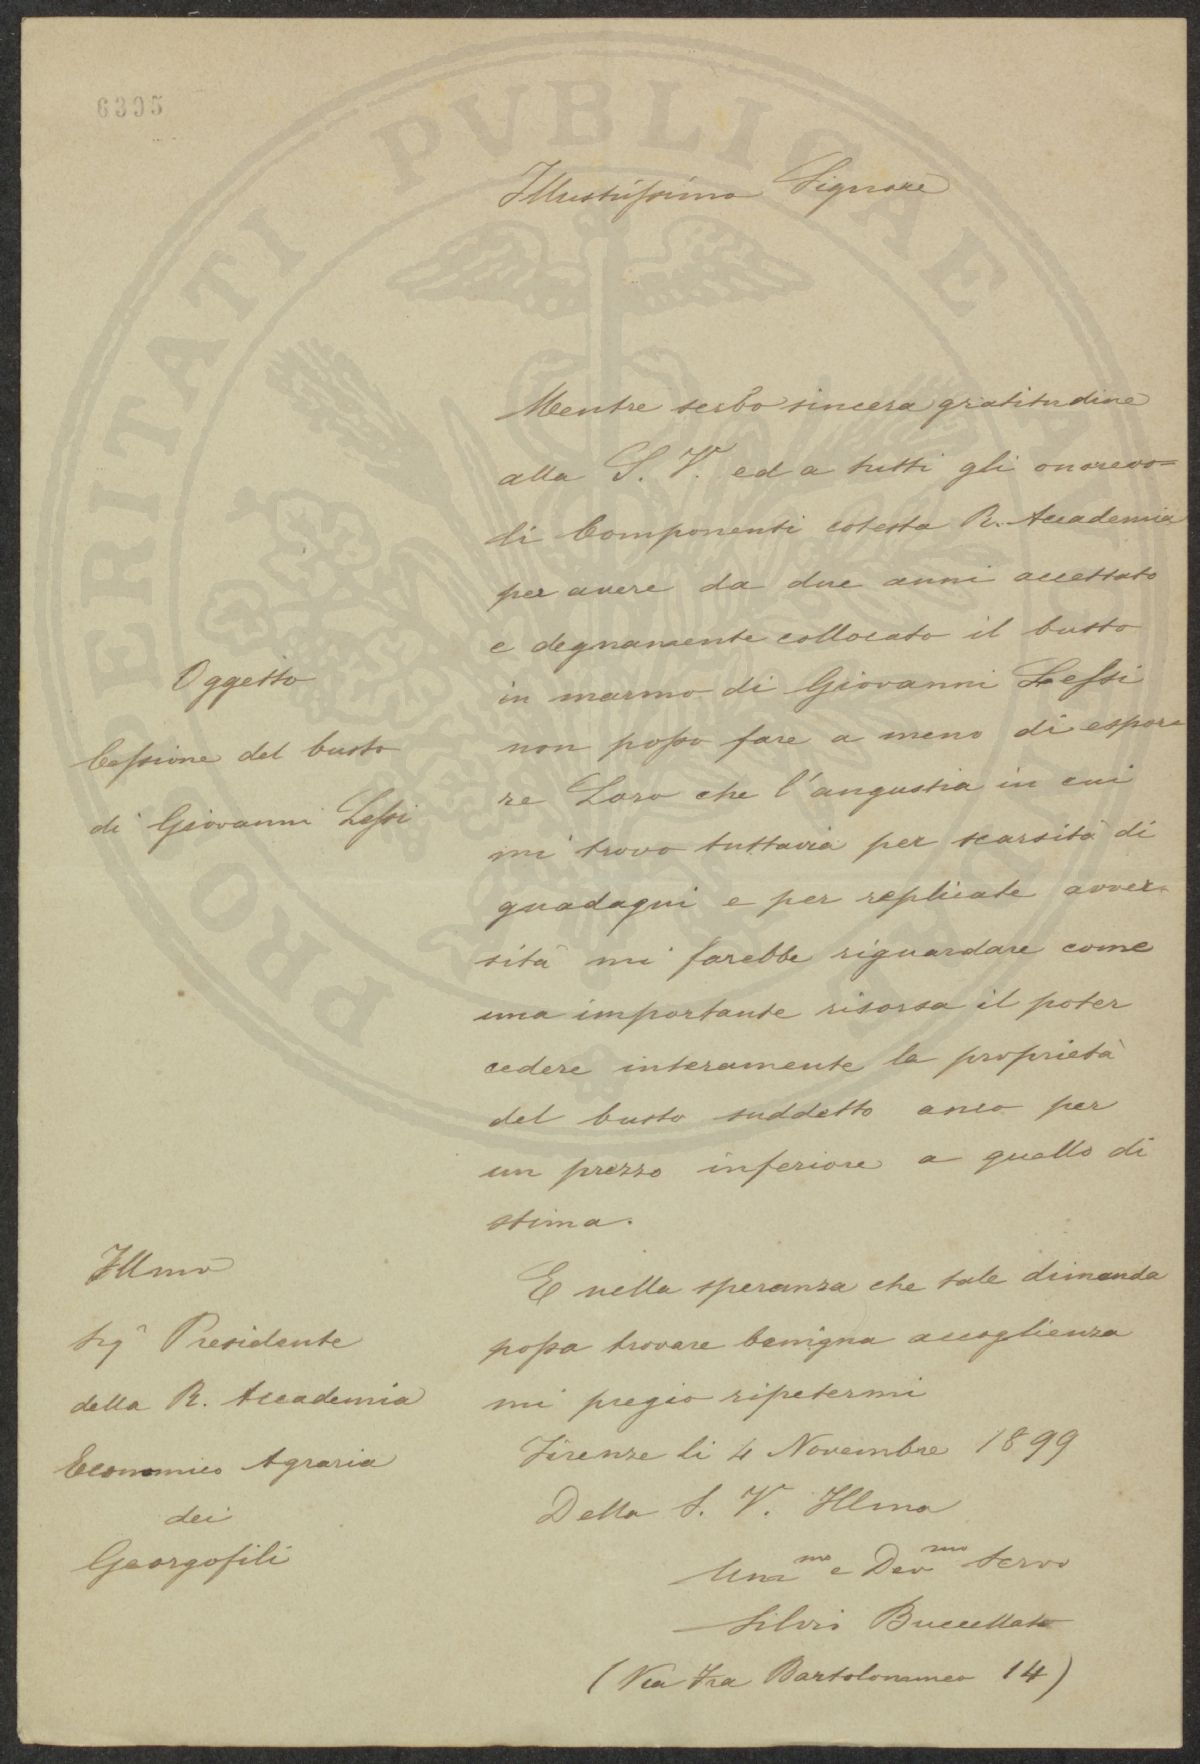 6395
Illustrissimo Signore
Mentre serbo sincera gratitudine
alla S. V. ed a tutti gli onorevo=
li Componenti cotesta R. Accademia
per avere da due anni accettato
e degnamente collocato il busto
in marmo di Giovanni Lessi
non posso fare a meno di espor=
re Loro che l'angustia in cui
mi trovo tuttavia per scarsità di
guadagni e per replicate avver=
sità mi farebbe riguardare come
una importante risorsa il poter
cedere interamente la proprietà
del busto suddetto anco per
un prezzo inferiore a quello di
stima.
E nella speranza che tale dimanda
possa trovare benigna accoglienza
mi pregio ripetermi
Firenze li 4 Novembre 1899
Della S. V. Illma
Umo e Devmo Servo
Silvio Buccellato
(Via Fra Bartolommeo 14)
Oggetto
Cessione del busto
di Giovanni Lessi
Illmo
Sigr Presidente
della R. Accademia
Economico Agraria
dei
Georgofili
PROSPERITATI PVBLICAE AVGENDAE